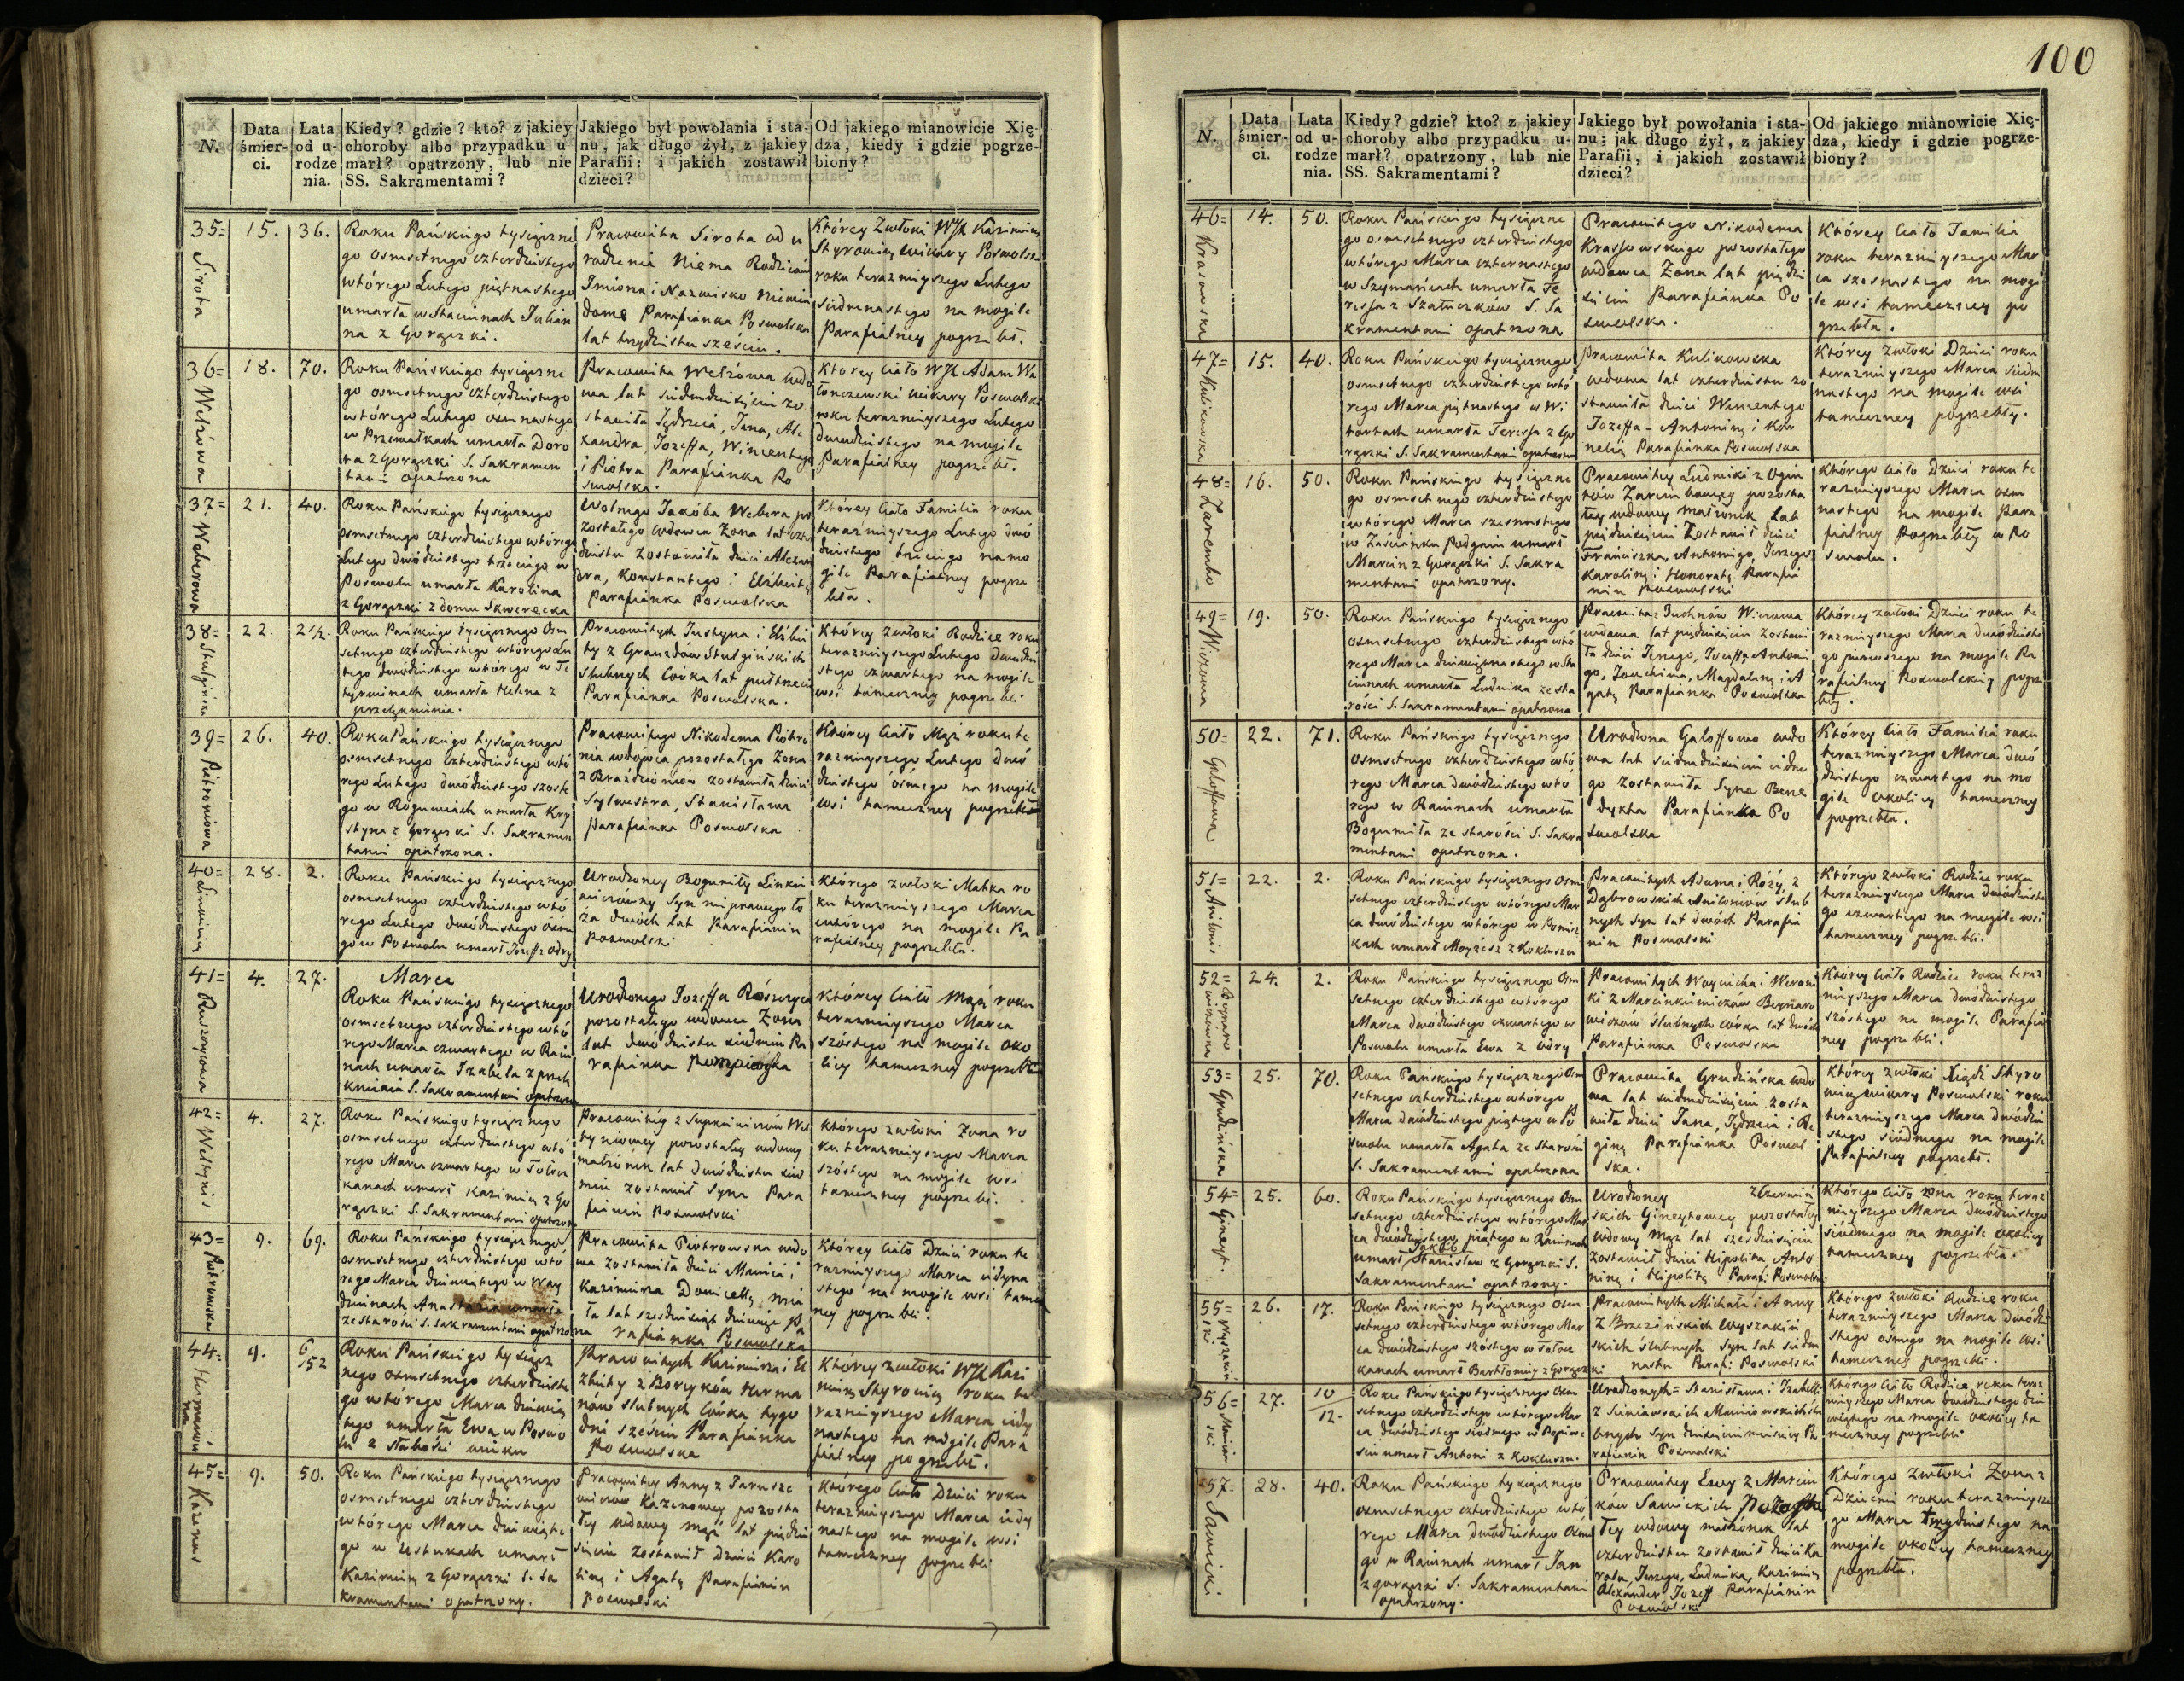 100
N.
Data śmierci.
Lata od urodzenia.
Kiedy? gdzie? kto? z jakiey
choroby albo przypadku u-
marł? opatrzony, lub nie
SS. Sakramentami?
Jakiego był powołania i sta-
nu, jak długo żył, z jakiey
Parafii: i jakich zostawił
dzieci?
Od jakiego mianowicie Xię-
dza, kiedy i gdzie pogrze-
biony?
35= Sirota
15.
36.
Roku Pańskiego tysiączne
go osmsetnego czterdziestego
wtórego Lutego piętnastego
umarła w Staciunach Julian
na z Gorączki.
Pracowita Sirota od u
rodzenia Niema Rodziców
Imiona i Nazwisko niewia
dome Parafianka Poswolska
lat trzydziestu sześciu.
Którey Zwłoki WJX Kazimierz
Styrowicz wikary Poswolski
roku terazniyszego Lutego
siedmnastego na mogile
Parafialney pogrzebł.
36=
18.
70.
Roku Pańskiego tysiączne
go osmsetnego czterdziestego
wtórego Lutego osmnastego
w Przewałkach umarła Doro
ta z Gorączki S. Sakramen
tami opatrzona
wa lat siedmdziesięciu zo
stawiła Jędrzeia, Jana, Ale
xandra, Jozeffa, Wincentego
i Piotra Parafianka Po
swolska.
Którey Ciało WJX Adam
wikary Poswolski
roku terazniyszego Lutego
dwudziestego na mogile
Parafialney pogrzebł.
37= Weberowa
21.
40.
Roku Pańskiego tysiącznego
osmsetnego czterdziestego wtórego
Lutego dwódziestego trzeciego w
Poswolu umarła Karolina
z Gorączki z domu
Wolnego Jakóba Webera po
zostałego wdowca Żona lat czter
dziestu zostawiła dzieci Alexan
dra, Konstantego i Elżbietę
Parafianka Poswolska
Którey Ciało Familia roku
terazniyszego Lutego dwó
dziestego trzeciego na mo
gile Parafialney pogrze
bła.
38= Stulgińska
22.
2 1/2.
Roku Pańskiego tysiącznego Osm
setnego czterdziestego wtórego Lu
tego dwódziestego wtórego w Te
tyrwinach umarła Helena z
przelęknienia.
Pracowitych Justyna i Elżbie
ty z Stulgińskich
Slubnych Córka lat półtrzecia
Parafianka Poswolska.
Którey zwłoki Rodzice roku
terazniyszego Lutego dwudzie
stego czwartego na mogile
wsi tameczney pogrzebli
39= Piotroniowa
26.
40.
Roku Pańskiego tysiącznego
osmsetnego czterdziestego wtó
rego Lutego dwódziestego szoste
go w umarła Kry
styna z Gorączki S. Sakramen
tami opatrzona.
Pracowitego Nikodema Piotro
nia wdowca pozostałego Żona
zostawiła dzieci
Sylwestra, Stanisława
Parafianka Poswolska
Którey Ciało Mąż roku te
razniyszego Lutego dwó
dziestego ósmego na mogile
wsi tameczney pogrzebł
40=
28.
2.
Roku Pańskiego tysiącznego
osmsetnego czterdziestego wtó
rego Lutego dwódziestego ósme
go w Poswolu umarł Jozeff z Odry
Urodzoney Bogumiły
Syn nieprawego ło
ża dwóch lat Parafianin
Poswolski
Którego zwłoki Matka ro
ku terazniyszego Marca
wtórego na mogile Pa
rafialney pogrzebła.
41=
4.
27.
Marca
Roku Pańskiego tysiącznego
osmsetnego czterdziestego wtó
rego Marca czwartego w Raiu
nach umarła Izabela z przelę
knienia S. Sakramentami opatrzona
Urodzonego Jozeffa
pozostałego wdowca Żona
lat dwódziestu siedmiu Pa
rafianka
Którey Ciało Mąż roku
terazniyszego Marca
szóstego na mogile oko
licy tameczney pogrzebł
42= Weltynis
4.
27.
Roku Pańskiego tysiącznego
osmsetnego czterdziestego wtó
rego Marca czwartego w
kanach umarł Kazimierz z Go
rączki S. Sakramentami opatrzony
pozostałey wdowy
małżonek lat dwódziestu sied
miu zostawił Syna Para
fianin Poswolski
Którego zwłoki Żona ro
ku terazniyszego Marca
szóstego na mogile wsi
tameczney pogrzebł.
43= Piotrowska
9.
69.
Roku Pańskiego tysiącznego
osmsetnego czterdziestego wtó
rego Marca dziewiątego w
Anastazia umarła
ze starości S. Sakramentami opatrzona
Pracowita Piotrowska wdo
wa zostawiła dzieci
Kazimierza
ła lat sześdziesiąt dziewięć Pa
rafianka Poswolska
Którey Ciało Dzieci roku te
razniyszego Marca iedyna
stego na mogile wsi tamecz
ney pogrzebli.
44=
9.
6/52
Roku Pańskiego tysiącz
nego osmsetnego czterdzieste
go wtórego Marca dziewią
tego umarła Ewa w Poswo
lu z słabości wieku
Pracowitych Kazimierza i El
zbiety z Borysków Herma
nów slubnych Córka tygo
dni sześciu Parafianka
Poswolska
Którey zwłoki WJX Kazi
mierz Styrowicz roku te
razniyszego Marca iedy
nastego na mogile Para
fialney pogrzebł.
45= Kazenas
9.
50.
Roku Pańskiego tysiącznego
osmsetnego czterdziestego
wtórego Marca dziewiąte
go w Ustukach umarł
Kazimierz z Gorączki S. Sa
kramentami opatrzony.
Pracowitey Anny z Jarusze
wiczów Kazenowey pozosta
łey wdowy mąż lat pięćdzie
sięciu zostawił dzieci Karo
linę i Agatę Parafianin
Poswolski
Którego Ciało Dzieci roku
terazniyszego Marca iedy
nastego na mogile wsi
tameczney pogrzebli
N.
Data śmierci.
Lata od urodzenia.
Kiedy? gdzie? kto? z jakiey
choroby albo przypadku u-
marł? opatrzony, lub nie
SS. Sakramentami?
Jakiego był powołania i sta-
nu; jak długo żył, z jakiey
Parafji, i jakich zostawił
dzieci?
Od jakiego mianowicie Xię-
dza, kiedy i gdzie pogrze-
biony?
46= Krasowska
14.
50.
Roku Pańskiego tysiączne
go osmsetnego czterdziestego
wtórego Marca czternastego
w Szymańcach umarła Te
ressa z S. Sa
kramentami opatrzona
Pracowitego Nikodema
Krassowskiego pozostałego
wdowca Żona lat pięćdzie
sięciu Parafianka Po
swolska.
Którey Ciało Familia
roku terazniyszego Mar
ca szesnastego na mogi
le wsi tameczney po
grzebła.
47= Kulikowska
15.
40.
Roku Pańskiego tysiącznego
osmsetnego czterdziestego wtó
rego Marca piętnastego w Wi
tartach umarła Teressa z Go
rączki S. Sakramentami opatrzona
Pracowita Kulikowska
wdowa lat czterdziestu zo
stawiła dzieci Wincentego
Jozeffa - Antoninę i Kor
nelią Parafianka Poswolska
Którey zwłoki Dzieci roku
terazniyszego Marca siedm
nastego na mogile wsi
tameczney pogrzebły.
48= Zaremba
16.
50.
Roku Pańskiego tysiączne
go osmsetnego czterdziestego
wtórego Marca szesnastego
w Zaścianku Podgaiu umarł
Marcin z Gorączki S. Sakra
mentami opatrzony.
Pracowitey Ludwiki z
pozosta
łey wdowy małżonek lat
pięćdziesięciu Zostawił dzieci
Franciszka, Antoniego, Jerzego
Karolinę i Honoratę Parafia
nin Poswolski
Którego Ciało Dzieci roku te
razniyszego Marca osm
nastego na mogile Para
fialney Pogrzebły w Po
swolu.
49=
19.
50.
Roku Pańskiego tysiącznego
osmsetnego czterdziestego wtó
rego Marca dziewiętnastego w Sta
ciunach umarła Ludwika ze sta
rości S. Sakramentami opatrzona
wdowa lat pięćdziesięciu zostawi
ła dzieci Jerzego, Jozeffa Antoni
go, Joachima, Magdalenę i A
gatę Parafianka Poswolska
Którey zwłoki Dzieci roku te
razniyszego Marca dwódzieste
go pierwszego na mogile Pa
rafialney Poswolskiey pogrze
bły.
50= Galoffowa
22.
71.
Roku Pańskiego tysiącznego
osmsetnego czterdziestego wtó
rego Marca dwódziestego wtó
rego w Raiunach umarła
Bogumiła ze starości S. Sakra
mentami opatrzona.
Urodzona Galoffowa wdo
wa lat siedmdziesięciu iedne
go Zostawiła Syna Bene
dykta Parafianka Po
swolska
Którey Ciało Familia roku
terazniyszego Marca dwó
dziestego czwartego na mo
gile okolicy tameczney
pogrzebła.
51= Anilonis
22.
2.
Roku Pańskiego tysiącznego Osm
setnego czterdziestego wtórego Mar
ca dwódziestego wtórego w
kach umarł Moyżesz z Kokluszu
Pracowitych Adama i Róży, z
Dąbrowskich Anilonisów slub
nych Syn lat dwóch Parafia
nin Poswolski
Którego zwłoki Rodzice roku
terazniyszego Marca dwódzieste
go czwartego na mogile wsi
tameczney pogrzebli.
52=
24.
2.
Roku Pańskiego tysiącznego Osm
setnego czterdziestego wtórego
Marca dwódziestego czwartego w
Poswolu umarła Ewa z Odry
Pracowitych Woyciecha i Weroni
ki z Marcinkiewiczów
wiczów ślubnych Córka lat dwóch
Parafianka Poswolska
Którey Ciało Rodzice roku teraz
niyszego Marca dwódziestego
szóstego na mogile Parafial
ney pogrzebli.
53= Grudzińska
25.
70.
Roku Pańskiego tysiącznego Osm
setnego czterdziestego wtórego
Marca dwódziestego piątego w Po
swolu umarła Agata ze Starości
S. Sakramentami opatrzona
Pracowita Grudzińska wdo
wa lat siedmdziesięciu zosta
wiła dzieci Jana, Jędrzeia i Re
ginę Parafianka Poswol
ska.
Którey zwłoki Xiądz Styro
wicz wikary Poswolski roku
terazniyszego Marca dwódzie
stego siódmego na mogile
Parafialney pogrzebł.
54= Gineyt.
25.
60.
Roku Pańskiego tysiącznego Osm
setnego czterdziestego wtórego Mar
ca dwódziestego piątego w Raiunach
Jakób
umarł Stanisław z Gorączki S.
Sakramentami opatrzony.
Urodzoney z Czerniń
skich Gineytowey pozostałey
wdowy mąż lat sześdziesięciu
zostawił dzieci Hipolita, Anto
ninę i Hipolitę Parafi Poswolski
Którego Ciało żona roku teraz
niyszego Marca dwódziestego
siódmego na mogile okolicy
tameczney pogrzebła.
55=
26.
17.
Roku Pańskiego tysiącznego Osm
setnego czterdziestego wtórego Mar
ca dwódziestego szóstego w
kanach umarł Bartłomiey z Gorączki
Pracowitych Michała i Anny
z Brzezińskich
skich ślubnych Syn lat siedm
nastu Parafi Poswolski
Którego zwłoki Rodzice roku
terazniyszego Marca dwódzie
stego ósmego na mogile wsi
tameczney pogrzebli.
56=
27.
10/12.
Roku Pańskiego tysiącznego Osm
setnego czterdziestego wtórego Mar
ca dwódziestego siódmego w
umarł Antoni z Kokluszu.
Urodzonych= Stanisława i Izabelli
z ślu
bnych Syn dziesięciu miesięcy Pa
rafianin Poswolski
Którego Ciało Rodzice roku teraz
niyszego Marca dwódziestego dzie
wiątego na mogile okolicy ta
meczney pogrzebli
57= Sawicki
28.
40.
Roku Pańskiego tysiącznego
osmsetnego czterdziestego wtó
rego Marca dwódziestego Osme
go w Raiunach umarł Jan
z gorączki S. Sakramentami
opatrzony.
Pracowitey Ewy z Marcin
ków Sawickich Pozosta
łey wdowy małżonek lat
czterdziestu zostawił dzieci Ka
rola, Jerzego, Ludwika, Kazimierz
Alexander Jozeff Parafianin
Poswolski
Którego Zwłoki Żona z
Dziećmi roku terazniysze
go Marca trzydziestego na
mogile okolicy tameczney
pogrzebła.